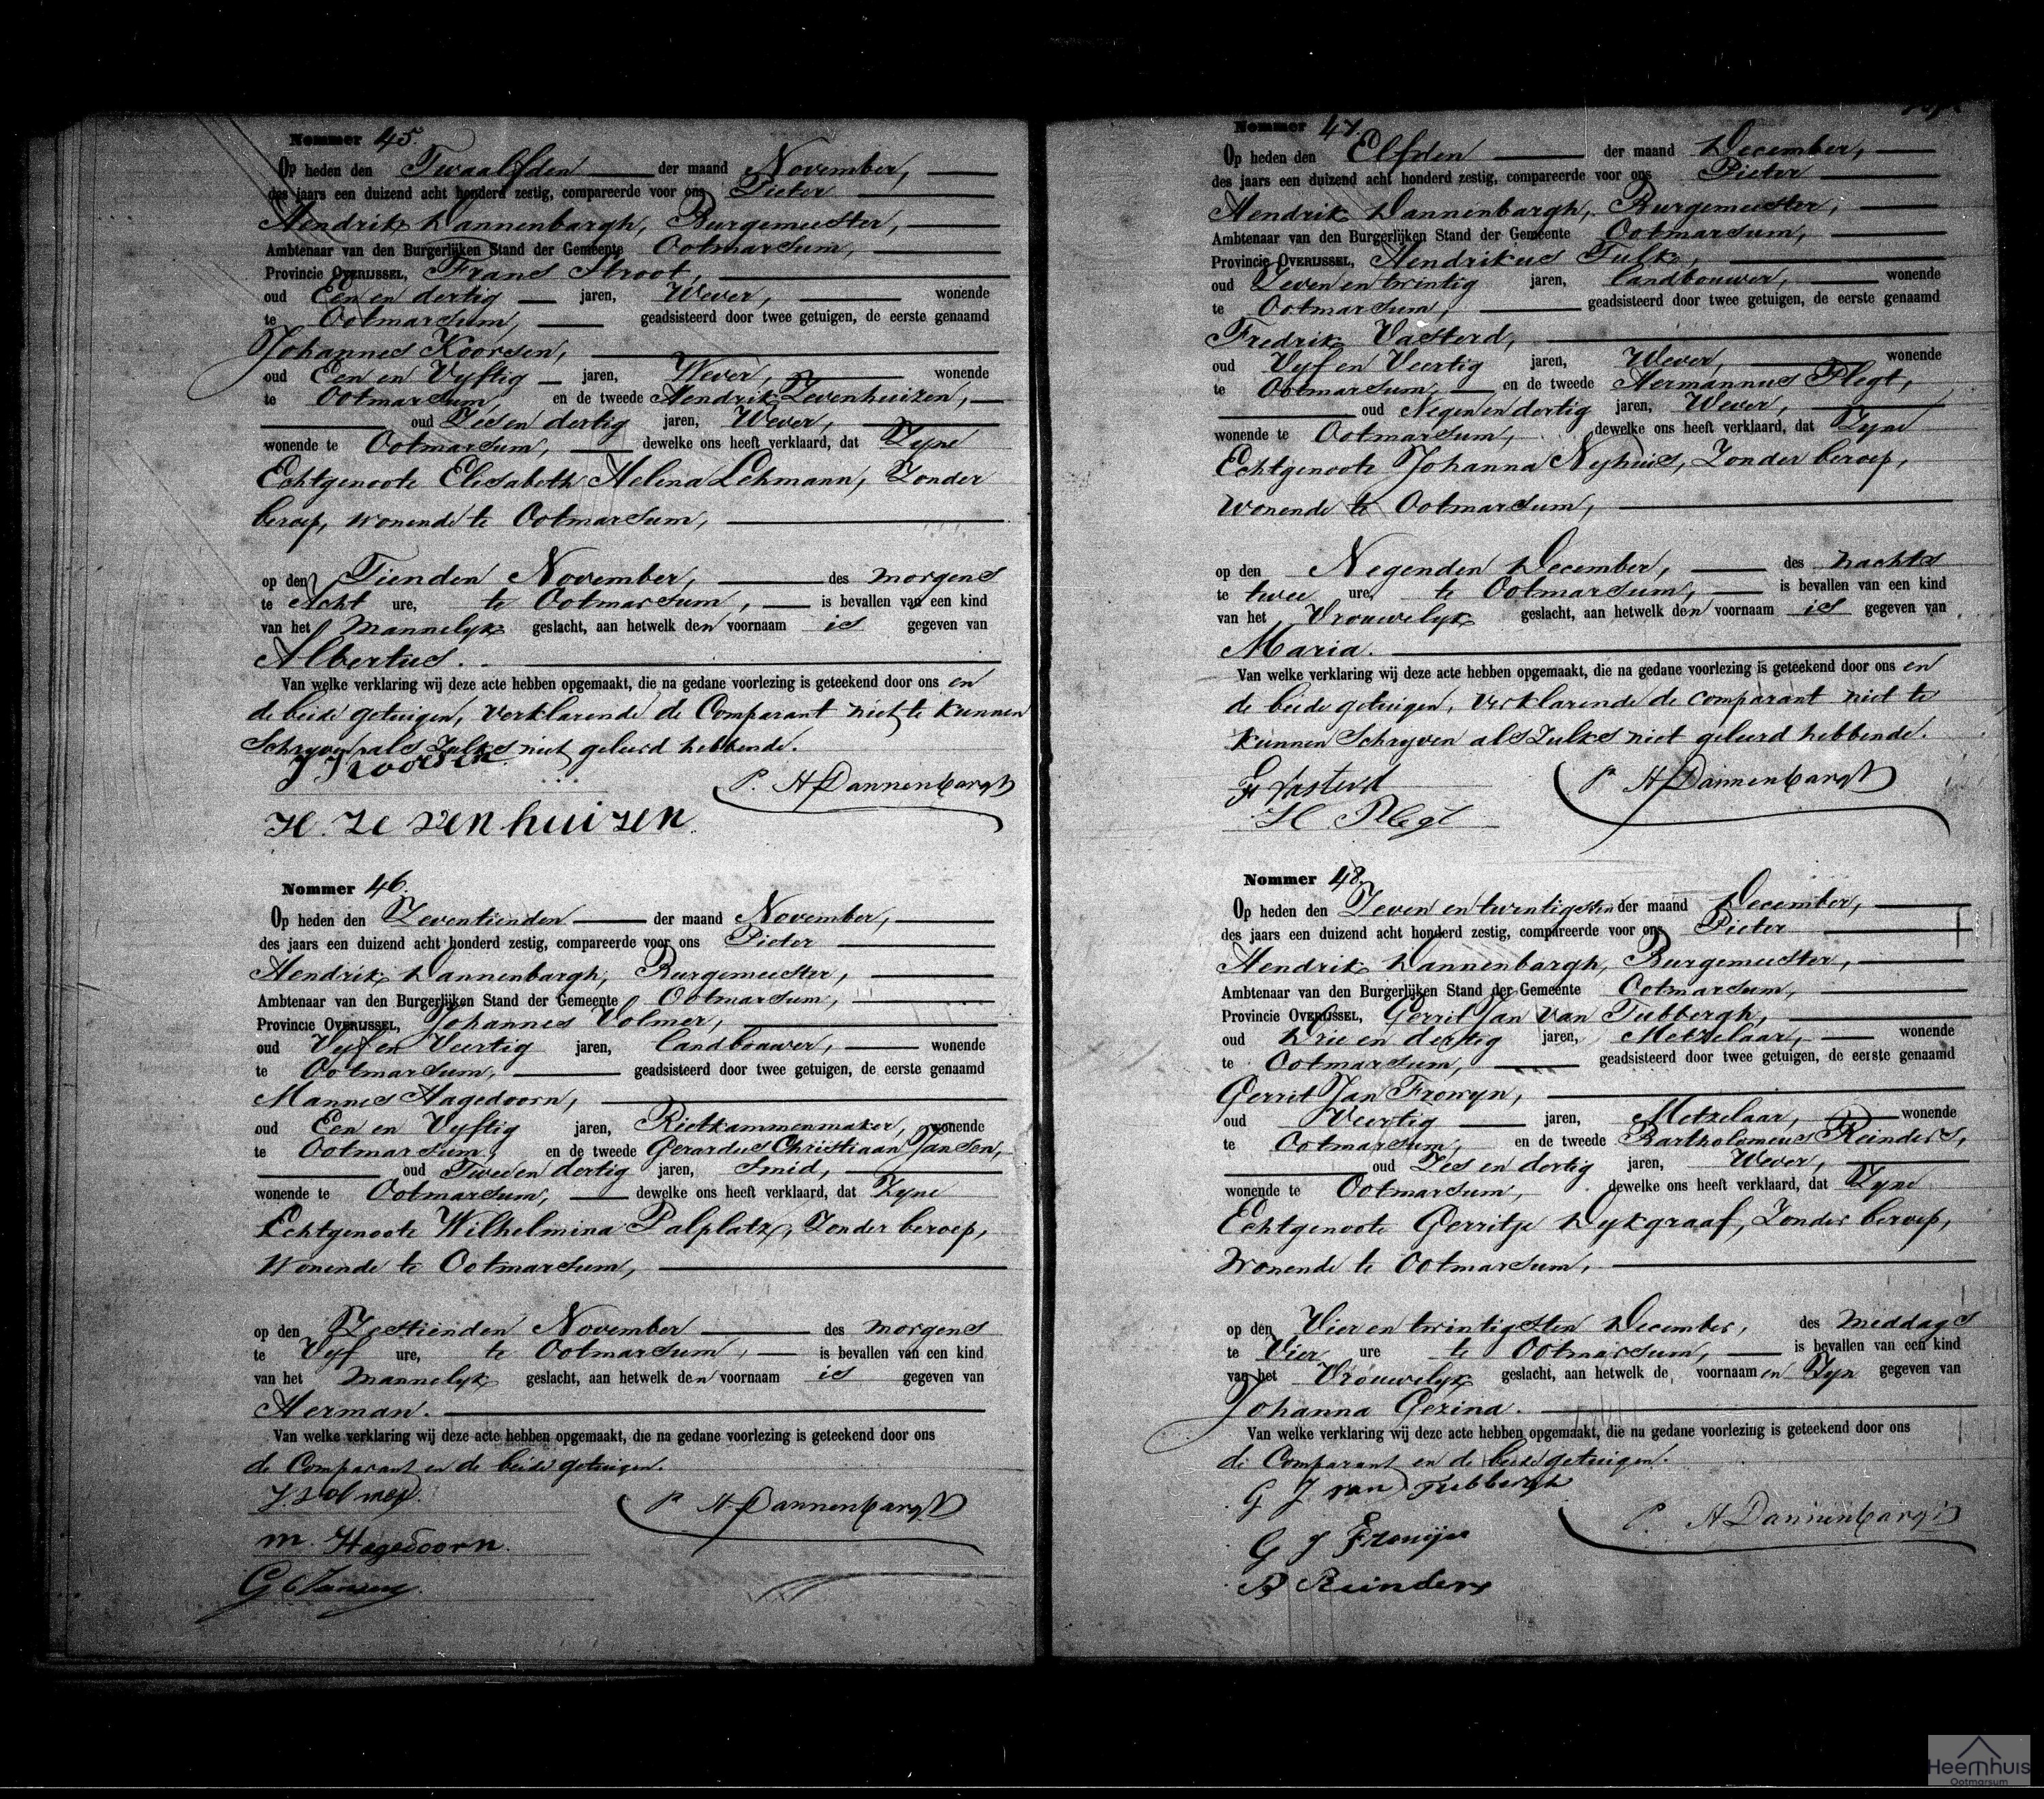 Nommer 45.
Op heden den Twaalfden der maand November,
des jaars een duizend acht honderd zestig, compareerde voor ons Pieter
Hendrik Dannenbargh, Burgemeester,
Ambtenaar van den Burgerlijken Stand der Gemeente Ootmarsum,
Provincie Overijssel, Frans Stroot,
oud Een en dertig jaren, Wever, wonende
te Ootmarsum, geadsisteerd door twee getuigen, de eerste genaamd
Johannes Koorsen,
oud Een en Vyftig jaren, Wever, wonende
te Ootmarsum, en de tweede Hendrik Zevenhuizen,
oud Zes en dertig jaren, Wever,
wonende te Ootmarsum, dewelke ons heeft verklaard, dat Zyne
Echtgenoote Elisabeth Helena Lehmann, Zonder
beroep, wonende te Ootmarsum,
op den Tienden November, des morgens
te Acht ure, te Ootmarsum, is bevallen van een kind
van het Mannelyk geslacht, aan hetwelk den voornaam is gegeven van
Albertus.
Van welke verklaring wij deze acte hebben opgemaakt, die na gedane voorlezing is geteekend door ons en
de beide getuigen, verklarende de Comparant niet te kunnen
Schryven als Zulks niet geleerd hebbende.
J Koorsen
P. H Dannenbargh
H. Zevenhuizen
Nommer 46.
Op heden den Zeventienden der maand November,
des jaars een duizend acht honderd zestig, compareerde voor ons Pieter
Hendrik Dannenbargh, Burgemeester,
Ambtenaar van den Burgerlijken Stand der Gemeente Ootmarsum,
Provincie Overijssel, Johannes Volmer,
oud Vyf en Veertig jaren, Landbouwer, wonende
te Ootmarsum, geadsisteerd door twee getuigen, de eerste genaamd
Mannes Hagedoorn,
oud Een en Vyftig jaren, Rietkammenmaker, wonende
te Ootmarsum, en de tweede Gerardus Christiaan Jansen,
oud Twee en dertig jaren, Smid,
wonende te Ootmarsum, dewelke ons heeft verklaard, dat Zyne
Echtgenoote Wilhelmina Palplatz, Zonder beroep,
Wonende te Ootmarsum,
op den Zestienden November des morgens
te Vyf ure, te Ootmarsum, is bevallen van een kind
van het Mannelyk geslacht, aan hetwelk den voornaam is gegeven van
Herman.
Van welke verklaring wij deze acte hebben opgemaakt, die na gedane voorlezing is geteekend door ons
de Comparant en de beide getuigen.
J. Volmer.
P. H. Dannenbargh
M. Hagedoorn.
G C Jansen
Nommer 47.
Op heden den Elfden der maand December,
des jaars een duizend acht honderd zestig, compareerde voor ons Pieter
Hendrik Dannenbargh, Burgemeester,
Ambtenaar van den Burgerlijken Stand der Gemeente Ootmarsum,
Provincie Overijssel, Hendrikus Tulk,
oud Zeven en twintig jaren, Landbouwer, wonende
te Ootmarsum, geadsisteerd door twee getuigen, de eerste genaamd
Fredrik Vasterd,
oud Vyf en Veertig jaren, Wever, wonende
te Ootmarsum, en de tweede Hermannus Plegt,
oud Negen en dertig jaren, Wever,
wonende te Ootmarsum, dewelke ons heeft verklaard, dat Zyne
Echtgenoote Johanna Nyhuis, Zonder beroep,
Wonende te Ootmarsum,
op den Negenden December, des nachts
te twee ure, te Ootmarsum, is bevallen van een kind
van het Vrouwelyk geslacht, aan hetwelk den voornaam is gegeven van
Maria.
Van welke verklaring wij deze acte hebben opgemaakt, die na gedane voorlezing is geteekend door ons en
de beide getuigen, verklarende de comparant niet te
kunnen Schryven als Zulks niet geleerd hebbende.
F Vasterd
P H Dannenbargh
H. Plegt
Nommer 48.
Op heden den Zeven en twintigsten der maand December,
des jaars een duizend acht honderd zestig, compareerde voor ons Pieter
Hendrik Dannenbargh, Burgemeester,
Ambtenaar van den Burgerlijken Stand der Gemeente Ootmarsum,
Provincie Overijssel, Gerrit Jan van Tubbergh,
oud Drie en dertig jaren, Metzelaar, wonende
te Ootmarsum, geadsisteerd door twee getuigen, de eerste genaamd
Gerrit Jan Frowyn,
oud Veertig jaren, Metzelaar, wonende
te Ootmarsum, en de tweede Bartholomeus Reinders,
oud Zes en dertig jaren, Wever,
wonende te Ootmarsum, dewelke ons heeft verklaard, dat Zyne
Echtgenoote Gerritje Dykgraaf, Zonder beroep,
Wonende te Ootmarsum,
op den Vier en twintigsten December, des middags
te Vier ure te Ootmarsum, is bevallen van een kind
van het Vrouwelyk geslacht, aan hetwelk de voornaamen Zyn gegeven van
Johanna Gezina.
Van welke verklaring wij deze acte hebben opgemaakt, die na gedane voorlezing is geteekend door ons
de Comparant en de beide getuigen.
G J van Tubbergh
P. H Dannenbargh
G J Frowijn
B Reinders
Heemhuis
Ootmarsum